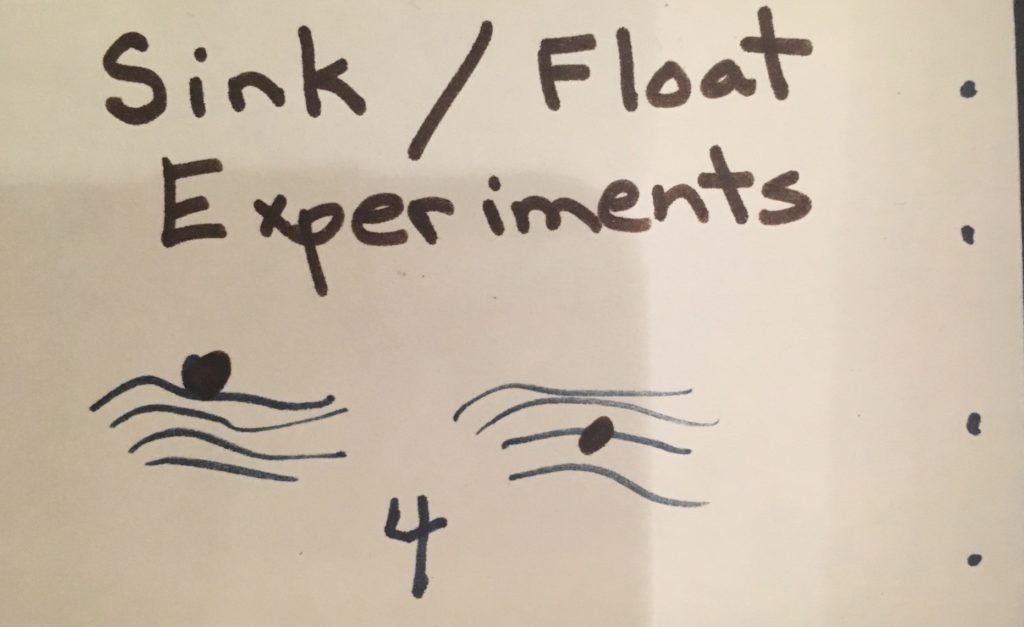 Sink / Float
Experiments
4